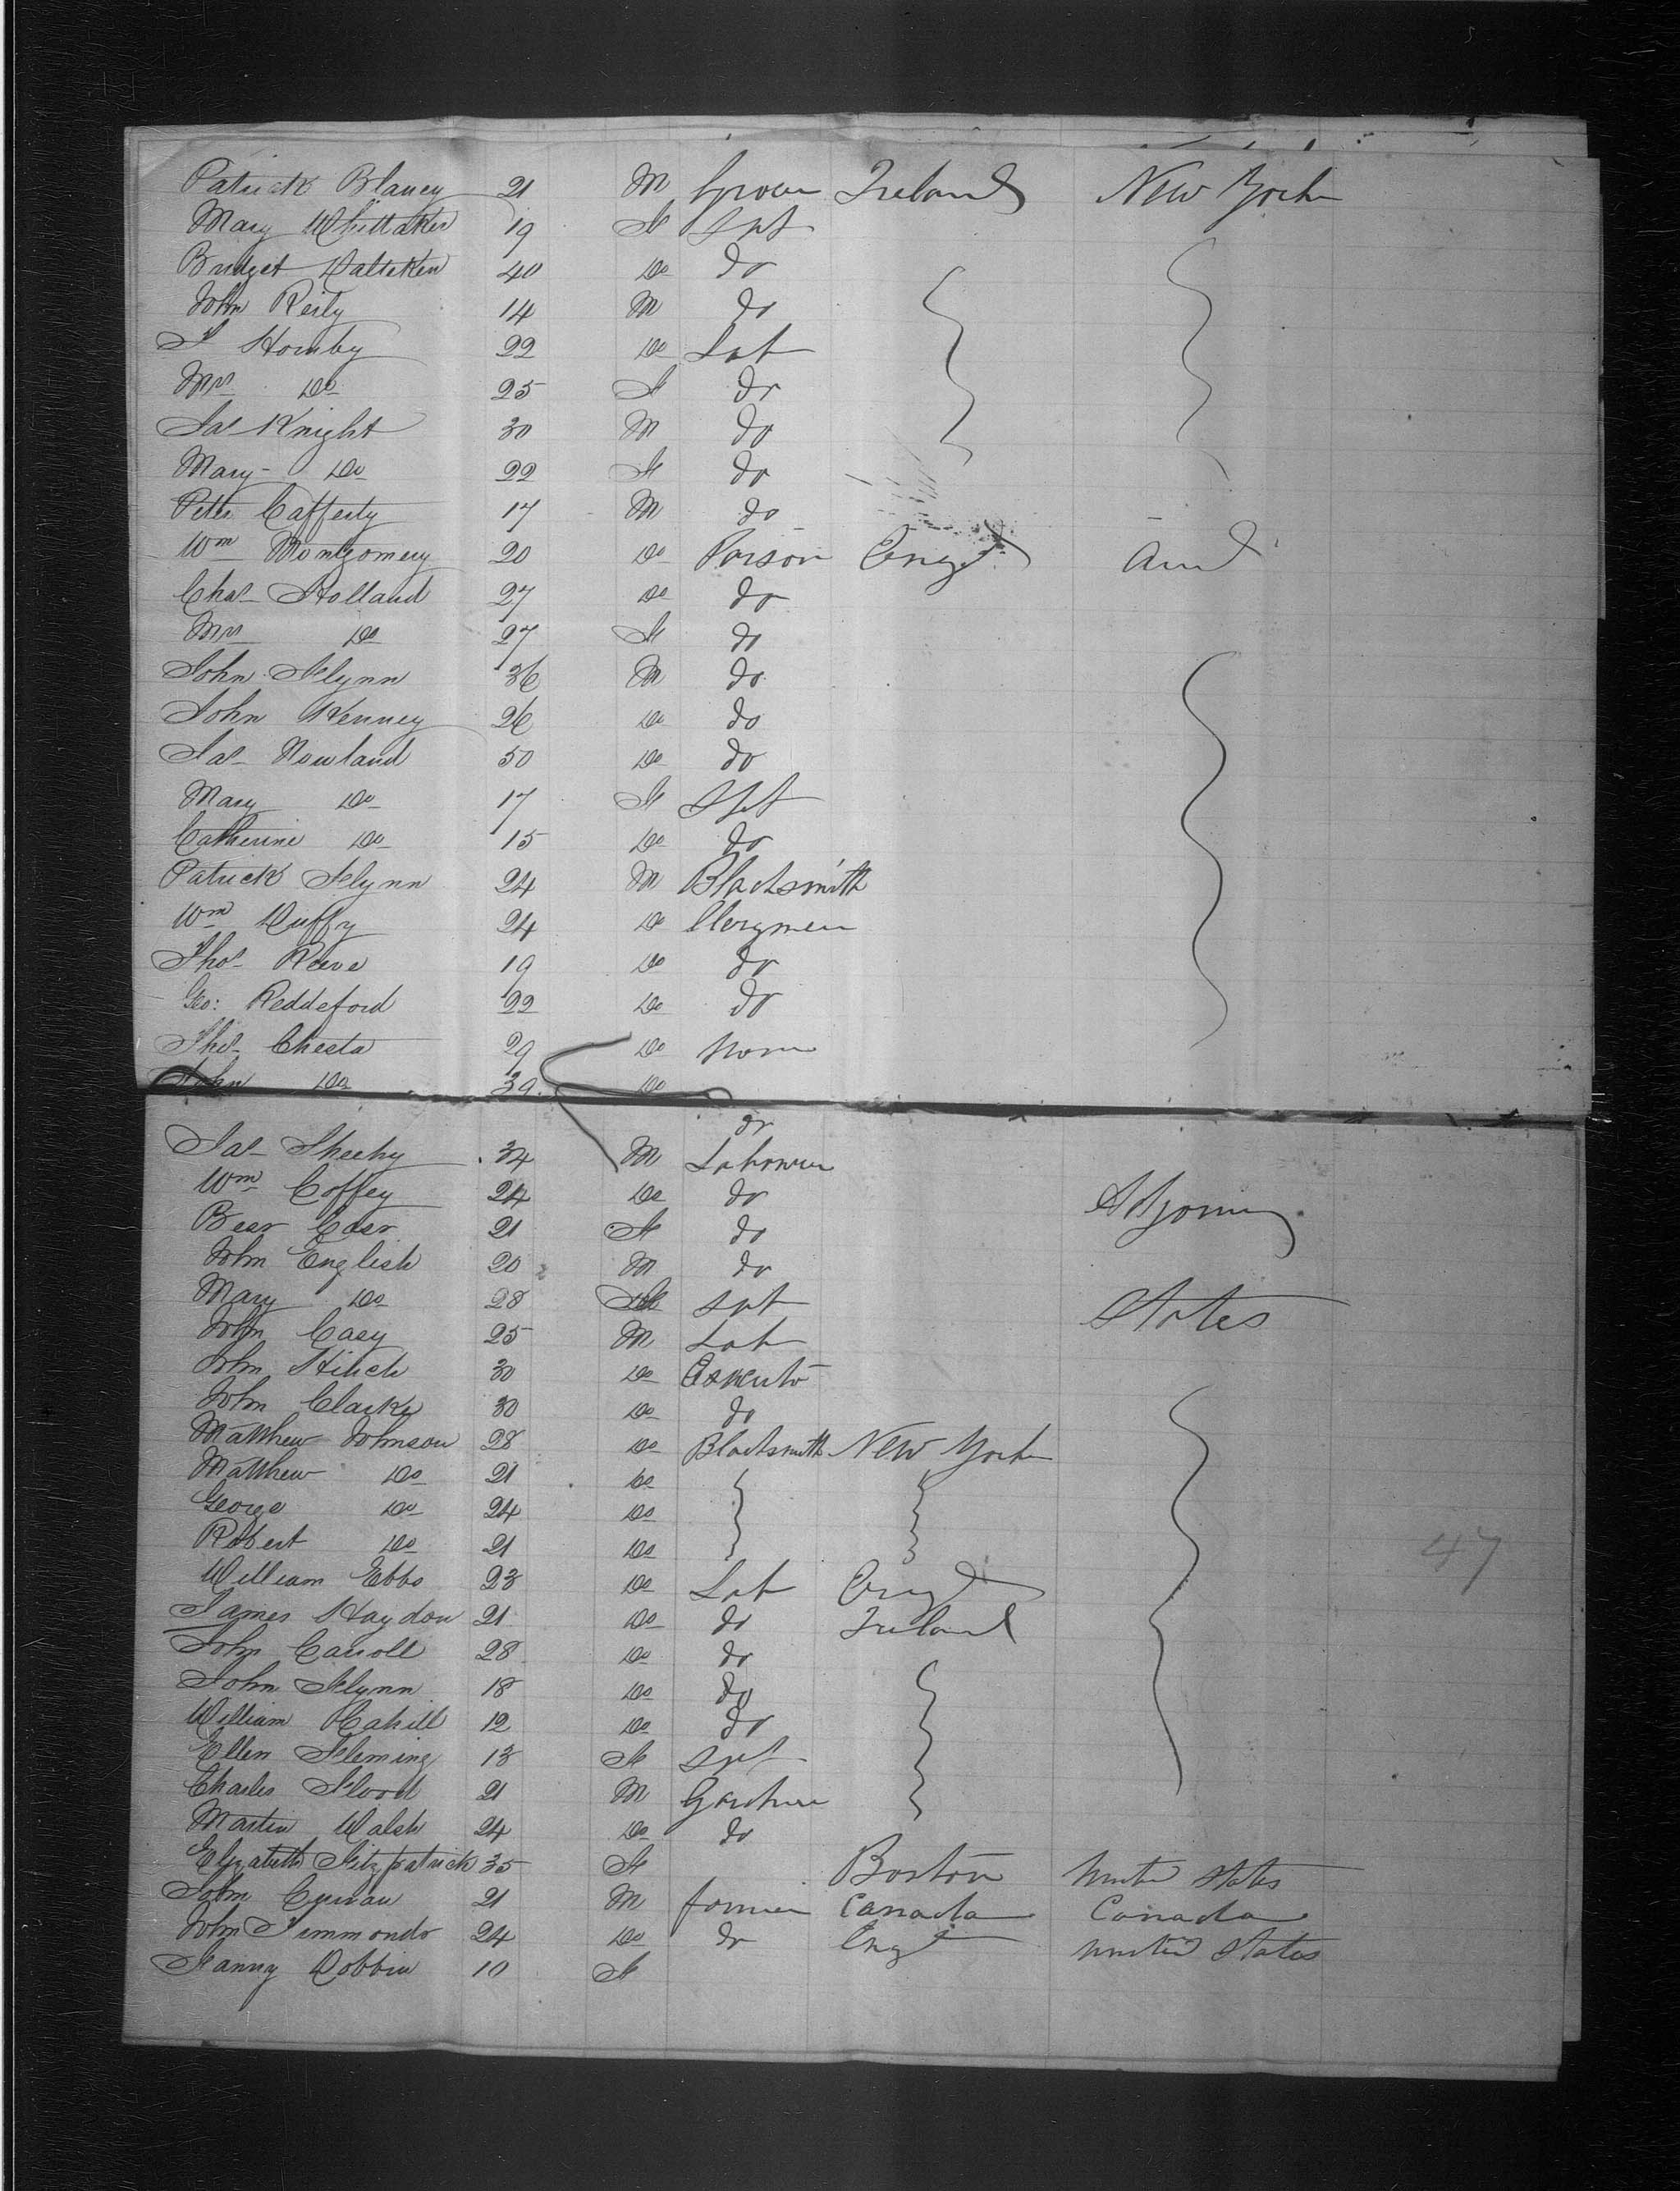 Patrick Blaney 21 M Grocer Ireland New York
Mary Whittaker 19 F Spt
Bridget 40 Do do
John Reily 14 M do
Hornby 22 Do Lab
Mrs Do 25 F do
Jas Knight 30 M do
Mary Do 22 F do
Peter Cafferty 17 M do
Wm Montgomery 20 Do Engd and
Chas Holland 27 Do do
Mrs Do 27 F do
John Flynn 36 M do
John Kenney 26 Do do
Jas Nowland 50 Do do
Mary Do 17 F Spt
Catherine Do 15 Do do
Patrick Flynn 24 M Blacksmith
Wm Duffy 24 Do Clergman
Thos Reeve 19 Do do
Geo: Reddeford 22 Do do
Thos Chesta 29 Do None
John Do 39 Do do
Jas Sheehy 34 M Labourer
Wm Coffey 24 Do do Adjoining
21 F do
John English 20 M do
Mary Do 28 Spt States
John Casy 25 M Lab
John 30 Do
John Clarke 30 Do do
Matthew Johnson 28 Do Blacksmith New York
Matthew Do 21 Do
George Do 24 Do
Robert Do 21 Do
William Ebbs 23 Do Lab Engd
James Haydon 21 Do do Ireland 47
John Carroll 28 Do do
John Flynn 18 Do do
William Cahill 12 Do do
Ellen Fleming 13 F Spt
Charles Flood 21 M Gardner
Martin Walsh 24 Do do
Elizabeth Fitzpatrick 35 F Boston United States
John 21 M farmer Canada Canada
John Simmonds 24 Do do Engd United States
Fanny Dobbin 10 F